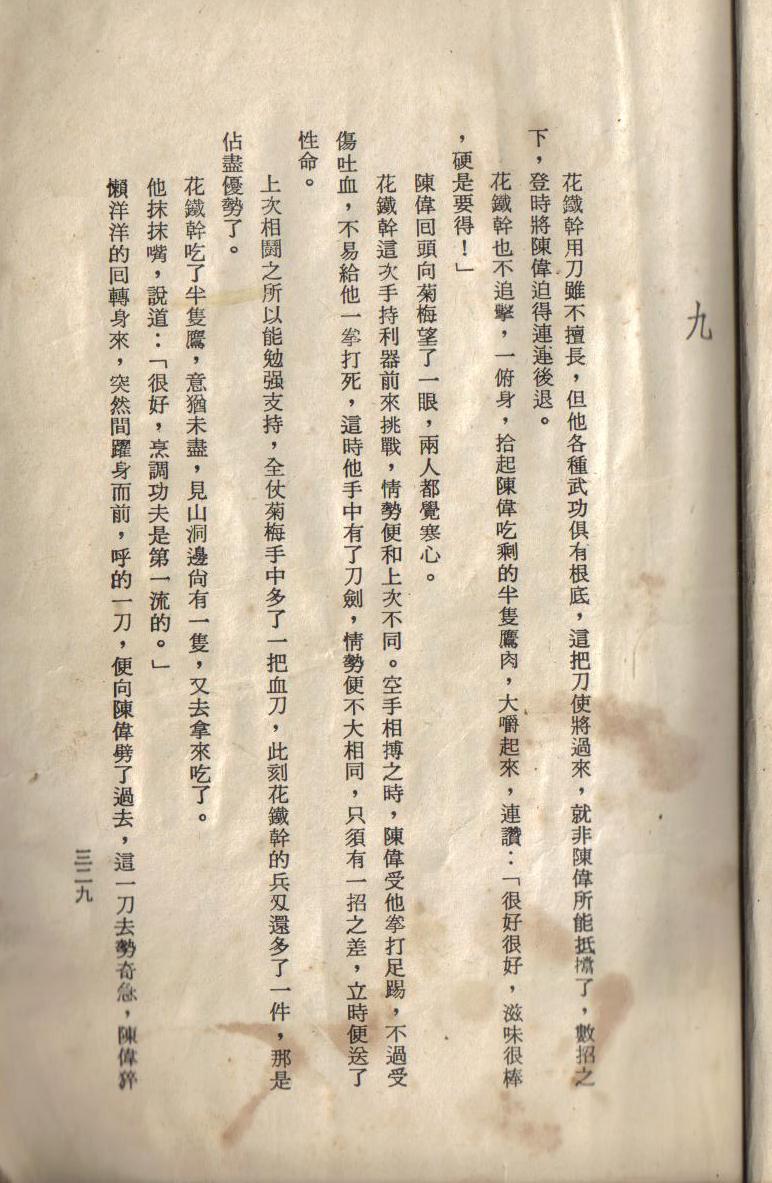 九
花鐵幹用刀雖不擅長，但他各種武功俱有根底，這把刀使將過來，就非陳偉所能抵擋了，數招之
下，登時將陳偉迫得連連後退。
花鐵幹也不追擊，一俯身，拾起陳偉吃剩的半隻鷹肉，大嚼起來，連讚：「很好很好，滋味很棒
，硬是要得！」
陳偉回頭向菊梅望了一眼，兩人都覺寒心。
花鐵幹這次手持利器前來挑戰，情勢便和上次不同。空手相搏之時，陳偉受他拳打足踢，不過受
傷吐血，不易給他一拳打死，這時他手中有了刀劍，情勢便不大相同，只須有一招之差，立時便送了
性命。
上次相鬪之所以能勉强支持，全仗菊梅手中多了一把血刀，此刻花鐵幹的兵刄還多了一件，那是
佔盡優勢了。
花鐵幹吃了半隻鷹，意猶未盡，見山洞邊尙有一隻，又去拿來吃了。
他抹抹嘴，說道：「很好，烹調功夫是第一流的。」
懶洋洋的回轉身來，突然間躍身而前，呼的一刀，便向陳偉劈了過去，這一刀去勢奇急，陳偉猝
三二九